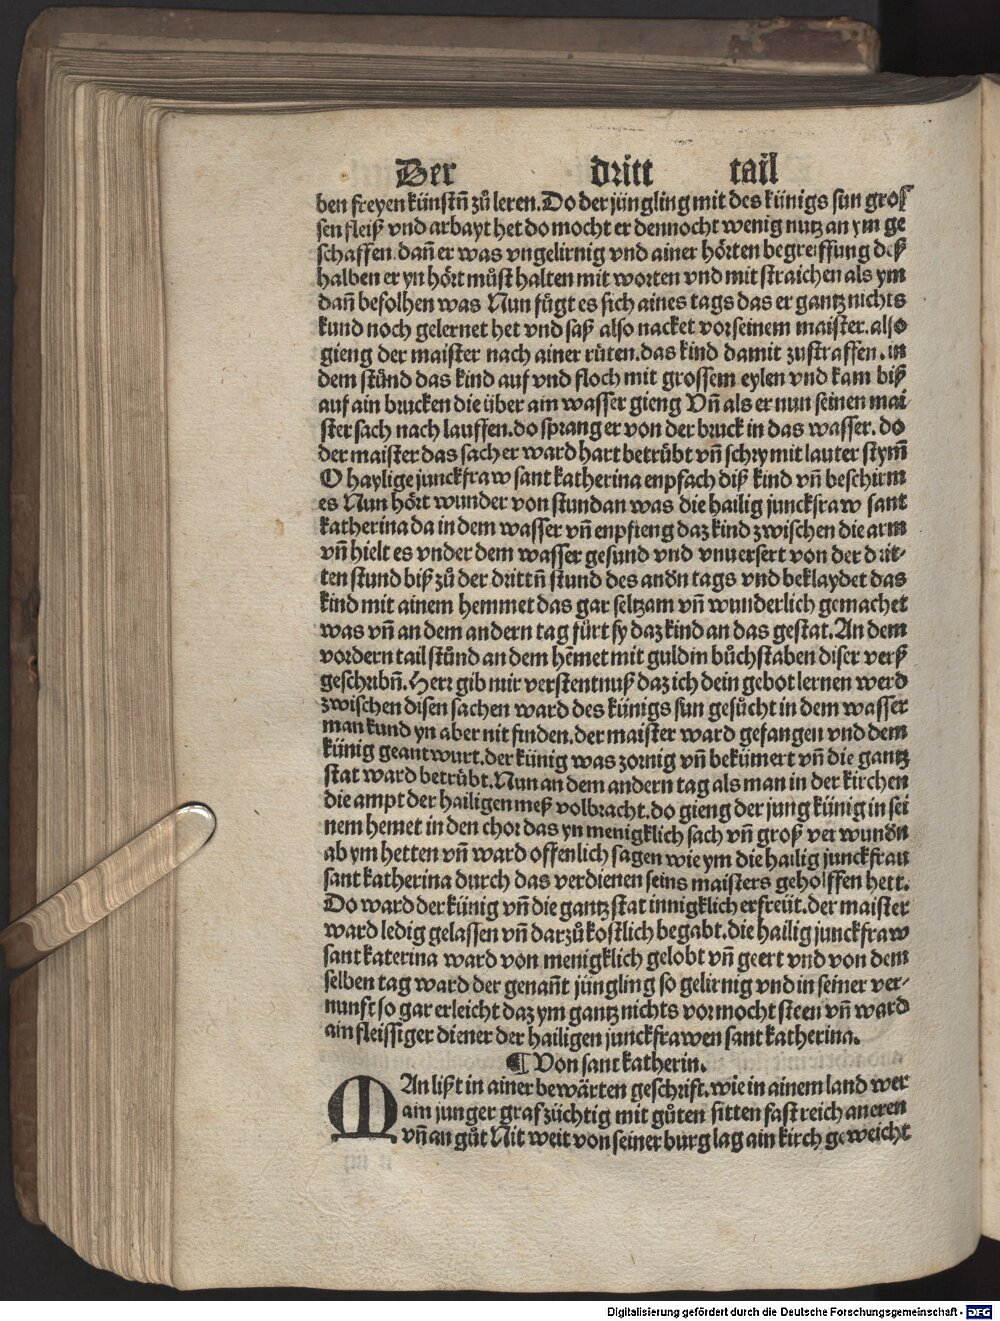 Der dritt tail
ben freyen künstn̄ zů leren. Do der jüngling mit des künigs sun gros
sen fleiß vnd arbayt het do mocht er dennocht wenig nutz an ym ge
schaffen. dan̄ er was vngelirnig vnd ainer hörten begreiffung deß
halben er yn hört müst halten mit worten vnd mit straichen als ym
dan̄ befolhen was Nun fügt es sich aines tags das er gantz nichts
kund noch gelernet het vnd saß also nacket vor seinem maister. also
gieng der maister nach ainer růten. das kind damit zustraffen. in
dem stůnd das kind auf vnd floch mit grossem eylen vnd kam biß
auf ain brucken die über ain wasser gieng Vn̄ als er nun seinen mai
ster sach nach lauffen. do sprang er von der bruck in das wasser. do
der maister das sach er ward hart betrübt vn̄ schry mit lauter stym̄
O haylige junckfraw sant katherina enpfach diß kind vn̄ beschirm
es Nun hört wunder von stundan was die hailig junckfraw sant
katherina da in dem wasser vn̄ enpfieng daz kind zwischen die arm
vn̄ hielt es vnder dem wasser gesund vnd vnuersert von der drit-
ten stund biß zů der drittn̄ stund des andn tags vnd beklaydet das
kind mit ainem hemmet das gar seltzam vn̄ wunderlich gemachet
was vn̄ an dem andern tag fürt sy daz kind an das gestat. An dem
vordern tail stůnd an dem hēmet mit guldin bůchstaben diser verß
geschribn̄. Herr gib mir verstentnuß daz ich dein gebot lernen werd
zwischen disen sachen ward des künigs sun gesůcht in dem wasser
man kund yn aber nit finden. der maister ward gefangen vnd dem
künig geantwurt. der künig was zornig vn̄ bekümert vn̄ die gantz
stat ward betrübt. Nun an dem andern tag als man in der kirchen
die ampt der hailigen meß volbracht. do gieng der jung künig in sei
nem hemet in den chor das yn menigklich sach vn̄ groß verwundn
ab ym hetten vn̄ ward offenlich sagen wie ym die hailig junckfrau
sant katherina durch das verdienen seins maisters geholffen hett.
Do ward der künig vn̄ die gantz stat innigklich erfreüt. der maister
ward ledig gelassen vn̄ darzů kostlich begabt. die hailig junckfraw
sant katerina ward von menigklich gelobt vn̄ geert vnd von dem
selben tag ward der genan̄t jüngling so gelirnig vnd in seiner ver-
nunft so gar erleicht daz ym gantz nichts vor mocht steen vn̄ ward
ain fleissiger diener der hailigen junckfrawen sant katherina.
¶ Von sant katherin.
MAn lißt in ainer bewärten geschrift. wie in ainem land wer
ain junger graf züchtig mit gůten sitten fast reich an eren
vn̄ an gůt Nit weit von seiner burg lag ain kirch geweicht
Digitalisierung gefördert durch die Deutsche Forschungsgemeinschaft - DFG